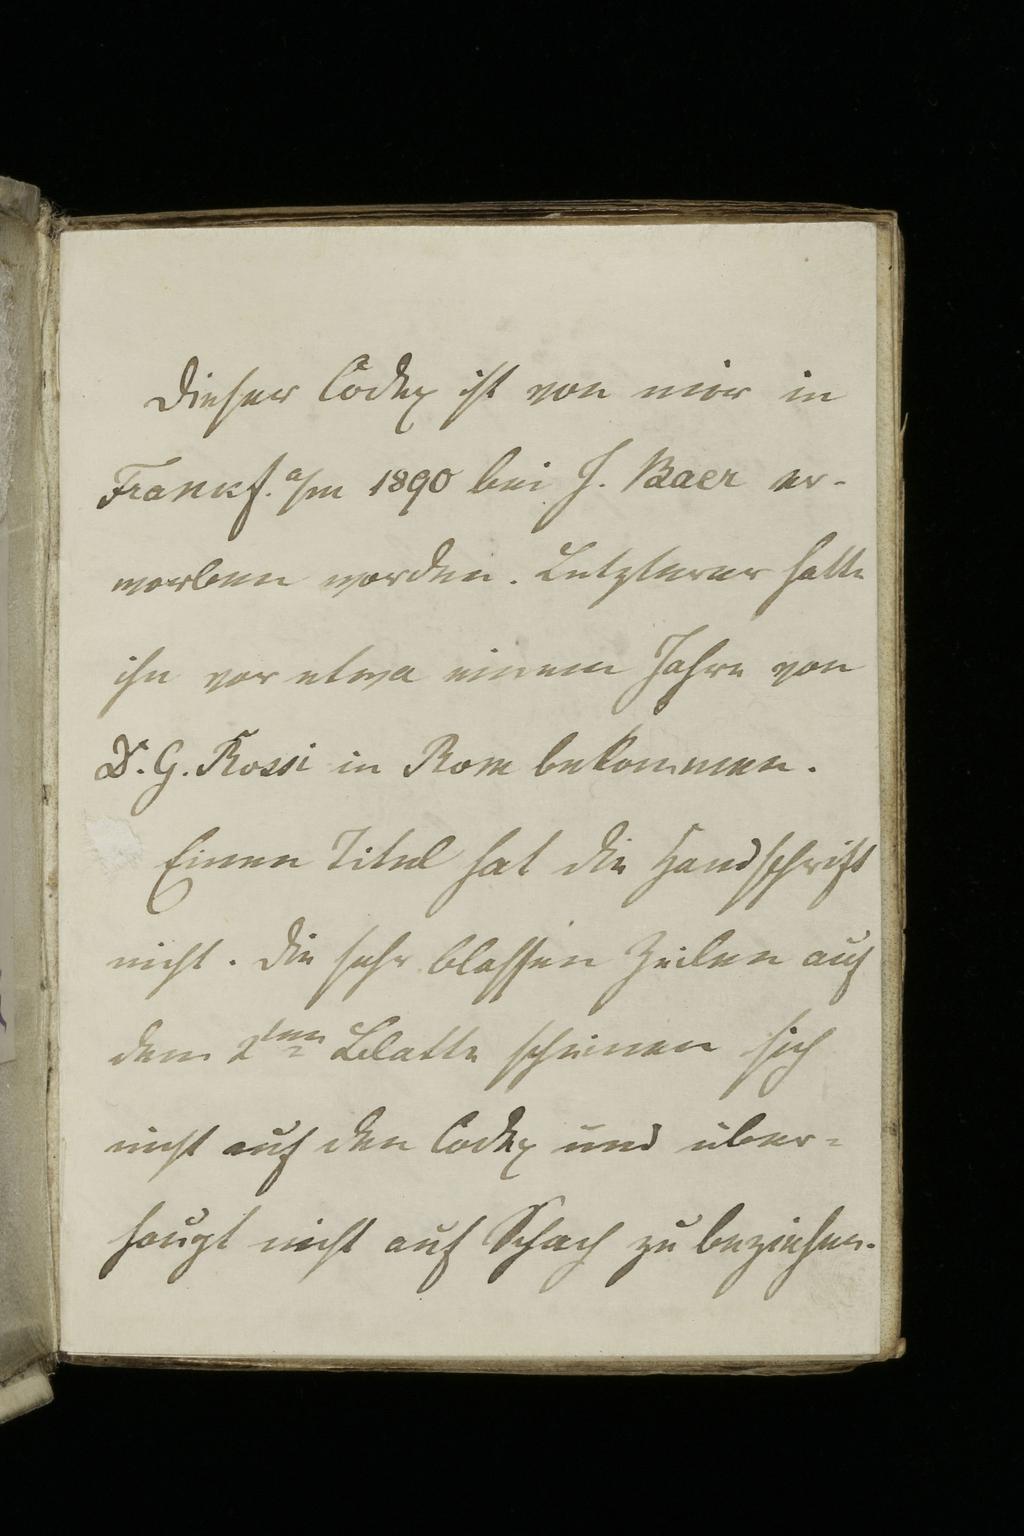 Dieser Codex ist von mir in
Frankf. a/m 1890 bei J. Baer er-
worben worden. Letzterer hatte
ihn vor etwa einem Jahre von
D. G. Rossi in Rom bekommen.
Einen Titel hat die Handschrift
nicht. Die sehr blassen Zeilen auf
dem 2ten Blatte scheinen sich
nicht auf den Codex und über-
haupt nicht auf Schach zu beziehen.